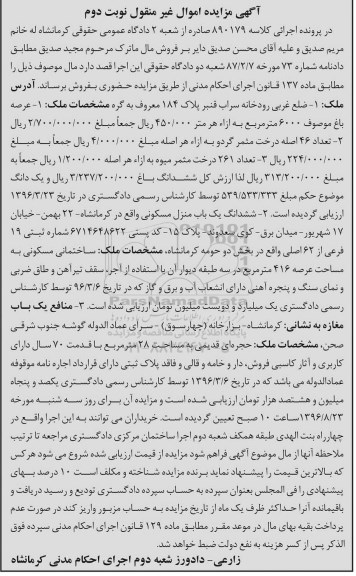 آگهی مزایده اموال غیر منقول نوبت دوم
در پرونده اجرائی کلاسه ۸۹۰۱۷۹ صادره از شعبه ۲ دادگاه عمومی حقوقی کرمانشاه له خانم
مریم صدیق و علیه آقای محسن صدیق دایر بر فروش مال ماترک مرحوم مجید صدیق مطابق
دادنامه شماره ۷۳ مورخه ۸۷/۲/۷ شعبه دو دادگاه حقوقی این اجرا قصد دارد مال موصوف ذیل را
مطابق ماده ۱۳۷ قانون اجرای احکام مدنی از طریق مزایده حضوری بفروش برساند. آدرس
ملک: ۱- ضلع غربی رودخانه سراب قنبر پلاک ۱۸۴ معروف به گره مشخصات ملک: ۱- عرصه
باغ موصوف ۶۰۰۰ مترمربع به ازاء هر متر ۴۵۰/۰۰۰ ریال جمعاً مبلغ ۲/۷۰۰/۰۰۰/۰۰۰ ریال
۲- تعداد ۴۶ اصله درخت مثمر گردو به ازاء هر اصله مبلغ ۴/۰۰۰/۰۰۰ ریال جمعاً به مبلغ
۲۲۴/۰۰۰/۰۰۰ ریال ۳- تعداد ۲۶۱ درخت مثمر میوه به ازاء هر اصله ۱/۲۰۰/۰۰۰ ریال جمعاً به
مبلغ ۳۱۳/۲۰۰/۰۰۰ ریال لذا ارزش کل ششدانگ باغ ۳/۲۳۷/۲۰۰/۰۰۰ ریال و یک دانگ
موضوع حکم مبلغ ۵۳۹/۵۳۳/۳۳۳ توسط کارشناس رسمی دادگستری در تاریخ ۱۳۹۶/۳/۲۳
ارزیابی گردیده است. ۲- ششدانگ یک باب منزل مسکونی واقع در کرمانشاه- ۲۲ بهمن- خیابان
۱۷ شهریور- میدان برق- کوی سعدوند- پلاک ۱۵- کد پستی ۶۷۱۴۶۴۸۶۲۲ شماره ثبتی ۱۹
فرعی از ۶۲ اصلی واقع در بخش دو حومه کرمانشاه، مشخصات ملک: ساختمانی مسکونی به
مساحت عرصه ۴۱۶ مترمربع در سه طبقه دیوار آن با استفاده از آجر، سقف تیرآهن و طاق ضربی
و نمای سنگ و پنجره آهنی دارای انشعاب آب و برق و گاز که در تاریخ ۹۶/۳/۶ توسط کارشناس
رسمی دادگستری یک میلیارد و دویست میلیون تومان ارزیابی شده است. ۳- منافع یک باب
مغازه به نشانی: کرمانشاه- بازارخانه (چهارسوق) - سرای عمادالدوله گوشه جنوب شرقی
صحن، مشخصات ملک: حجره‌ای قدیمی به مساحت ۲۸ مترمربع با قدمت ۷۰ سال دارای
کاربری و آثار کاسبی فروش، دار و خامه و قالی و فاقد پلاک ثبتی دارای قرارداد اجاره نامه موقوفه
عمادالدوله می باشد که در تاریخ ۱۳۹۶/۳/۶ توسط کارشناس رسمی دادگستری یکصد و پنجاه
میلیون و هشتصد هزار تومان ارزیابی شده است و مزایده آن برای روز سه شنبه مورخه
۱۳۹۶/۸/۲۳ ساعت ۱۰ صبح تعیین گردیده است. خریداران می توانند به این اجرا واقع در
چهارراه بنت الهدی طبقه همکف شعبه دوم اجرا ساختمان مرکزی دادگستری مراجعه تا ترتیب
ملاحظه آنها از مال موضوع آگهی فراهم شود مزایده از قیمت ارزیابی شده شروع می شود هر کس
که بالاترین قیمت را پیشنهاد نماید برنده مزایده شناخته و مکلف است ۱۰ درصد بهای
پیشنهادی را فی المجلس بعنوان سپرده به حساب سپرده دادگستری تودیع و رسید دریافت و
باقیمانده آنرا حداکثر ظرف یک ماه از تاریخ مزایده به حساب مزبور واریز کند در صورت عدم
پرداخت بقیه بهای مال در موعد مقرر مطابق ماده ۱۲۹ قانون اجرای احکام مدنی سپرده فوق
الذکر پس از کسر هزینه به نفع دولت ضبط خواهد شد.
زارعی- دادورز شعبه دوم اجرای احکام مدنی کرمانشاه